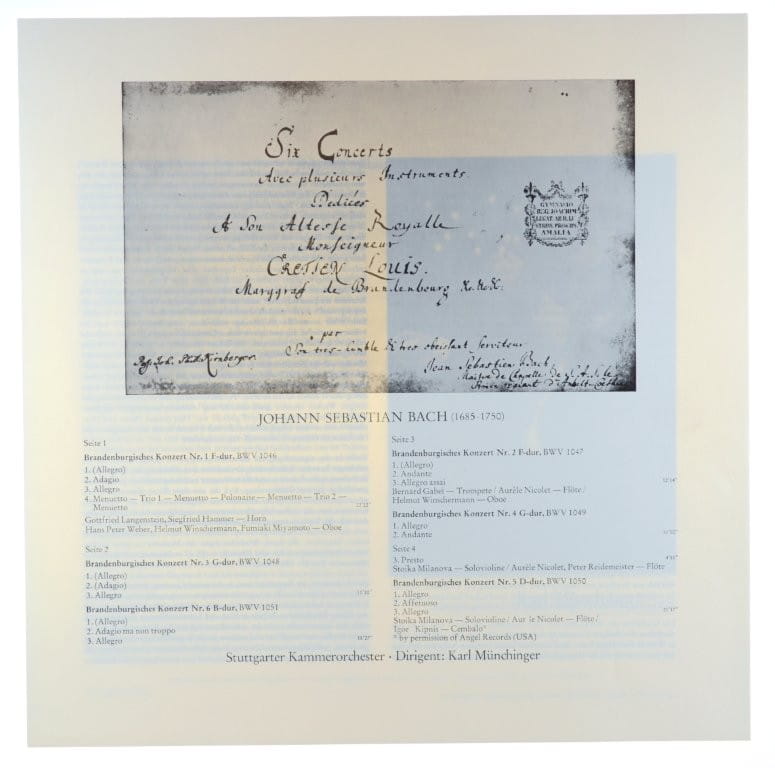 Six Concerts
Avec plusieurs Instruments
Dediées
A Son Altesse Royalle
Monseigneur
CRETIEN Louis.
Marggraf de Brandenbourg
GYMNASIO
REG. IOACHIM
AMALIA
par
Son tres-humble & tres obeissant Serviteur
Joh. Kirnberger.
Jean Sebastien Bach,
Maitre de Chapelle de
JOHANN SEBASTIAN BACH (1685-1750)
Seite 1
Brandenburgisches Konzert Nr. 1 F-dur, BWV 1046
1. (Allegro)
2. Adagio
3. Allegro
4. Menuetto — Trio 1 — Menuetto — Polonaise — Menuetto — Trio 2 —
Menuetto
Gottfried Langenstein, Siegfried Hammer — Horn
Hans Peter Weber, Helmut Winschermann, Fumiaki Miyamoto — Oboe
Seite 2
Brandenburgisches Konzert Nr. 3 G-dur, BWV 1048
1. (Allegro)
2. (Adagio)
3. Allegro
Brandenburgisches Konzert Nr. 6 B-dur, BWV 1051
1. (Allegro)
2. Adagio ma non troppo
3. Allegro
Seite 3
Brandenburgisches Konzert Nr. 2 F-dur, BWV 1047
1. (Allegro)
2. Andante
3. Allegro assai
Bernard Gabel — Trompete / Aurèle Nicolet — Flöte /
Helmut Winschermann — Oboe
Brandenburgisches Konzert Nr. 4 G-dur, BWV 1049
1. Allegro
2. Andante
Seite 4
3. Presto
Stoika Milanova — Solovioline / Aurèle Nicolet, Peter Reidemeister — Flöte
Brandenburgisches Konzert Nr. 5 D-dur, BWV 1050
1. Allegro
2. Affettuoso
3. Allegro
Stoika Milanova — Solovioline / Aur le Nicolet — Flöte /
Igor Kipnis — Cembalo*
* by permission of Angel Records (USA)
Stuttgarter Kammerorchester · Dirigent: Karl Münchinger